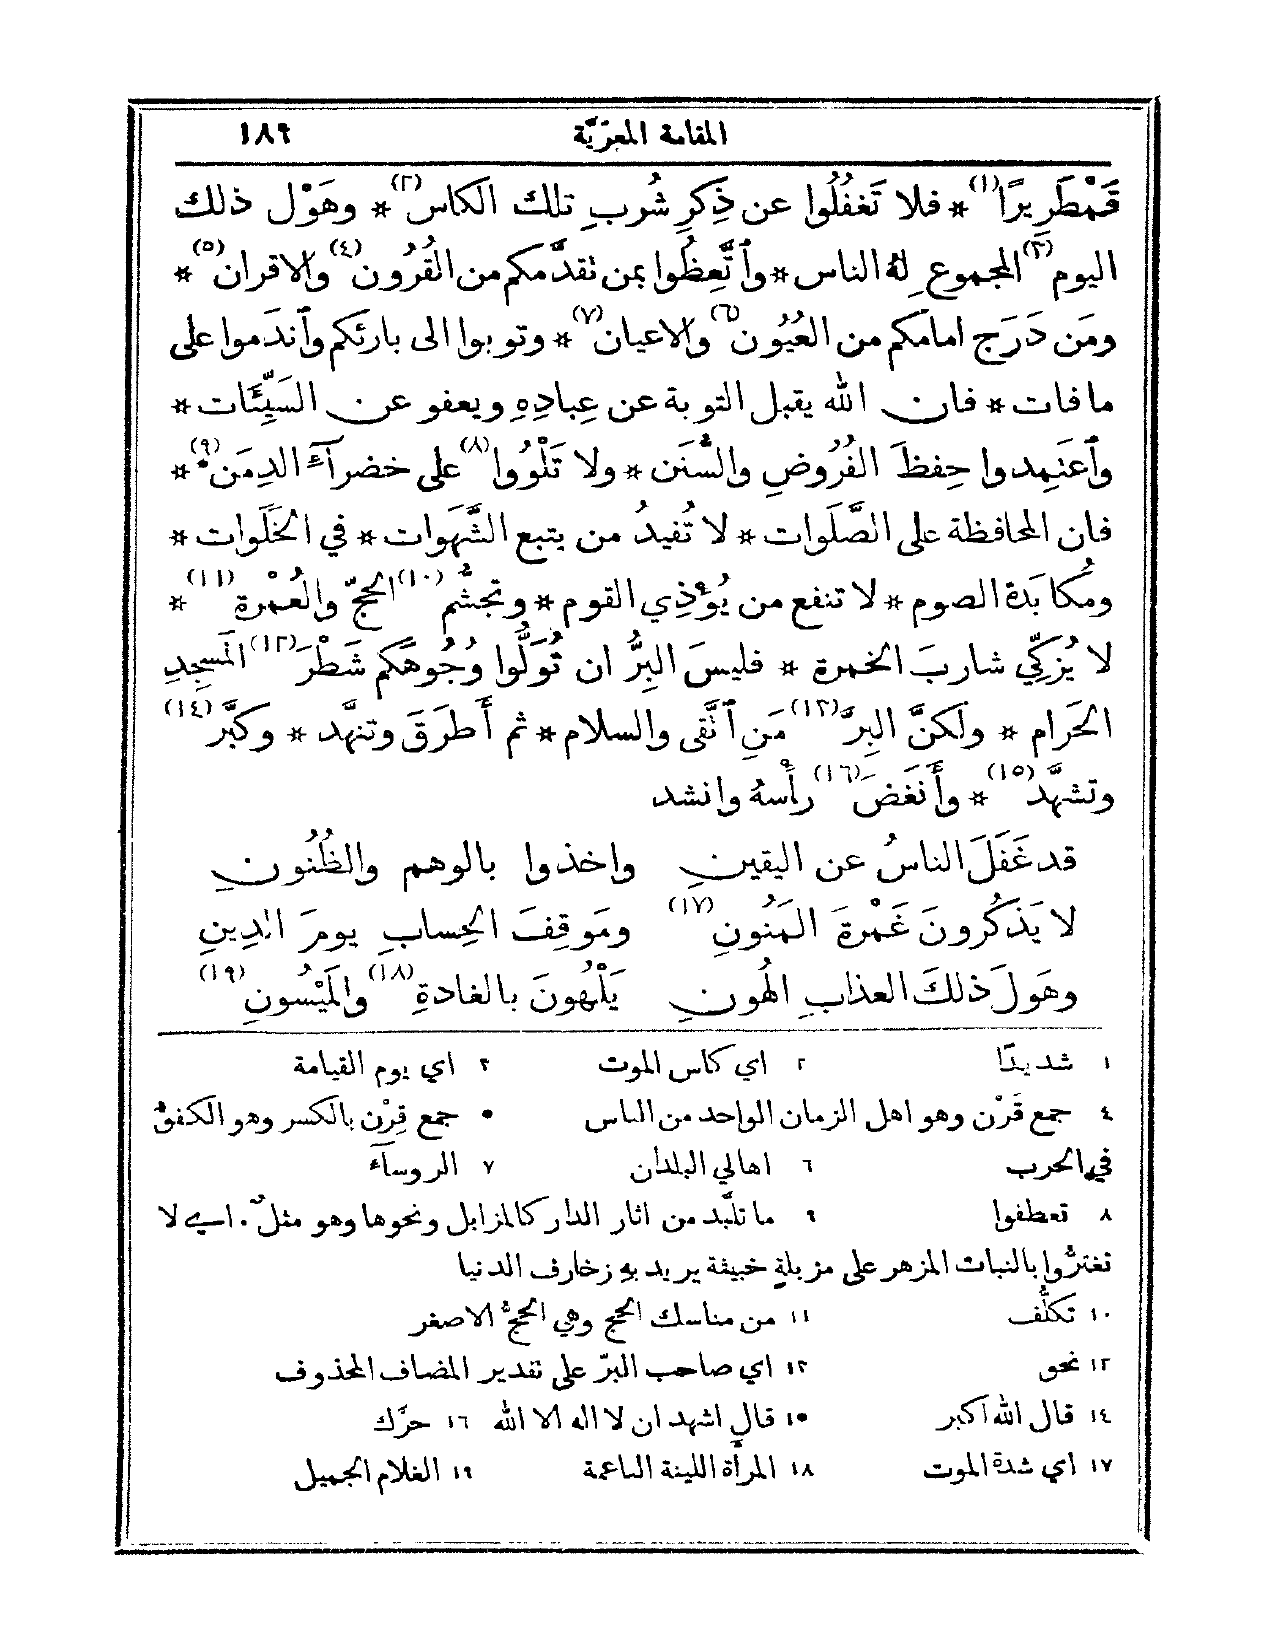 المقامة المعرّيّة ١٨٩
قَمْطَرِيرًا(١) * فلا تَغفُلُوا عن ذِكرِ شُربِ تلك الكاس(٢) * وهَوْل ذلك
اليوم(٣) المجموعِ لهُ الناس * وٱتَّعِظُوا بمن نقدَّمكم من القُرُون(٤) والاقران(٥) *
ومَن دَرَج امامكم من العُيُون(٦) والاعيان(٧) * وتوبوا الى بارئكم وٱندَموا على
ما فات * فان الله يقبل التوبة عن عِبادِهِ ويعفو عن السَيِّئَات *
وٱعتَمِدوا حِفظَ الفُرُوضِ والسُّنَن * ولا تَلْوُوا(٨) على خضرآءِ الدِمَن(٩) *
فان المحافظة على الصَّلَوات * لا تُفيدُ من يتبع الشَّهَوات * في الخَلَوات *
ومُكابَدة الصوم * لا تنفع من يُؤْذِي القوم * وتجشُّم(١٠) الحَجِّ والعُمْرة(١١) *
لا يُزكِّي شاربَ الخمرة * فليسَ البِرُّ ان تُوَلُّوا وُجُوهَكم شَطْرَ(١٢) المَسجِدِ
الحَرام * ولكنَّ البِرَّ(١٣) مَنِ ٱتَّقى والسلام * ثم أَطرَقَ وتنهَّد * وكبَّرَ(١٤)
وتشهَّد(١٥) * وأَنغَضَ(١٦) رأْسهُ وانشد
قد غَفَلَ الناسُ عن اليقينِ واخذوا بالوهم والظُنُونِ
لا يَذكُرونَ غَمْرةَ المَنُونِ(١٧) ومَوقِفَ الحِسابِ يومَ الدِينِ
وهَولَ ذلكَ العذابِ الهُونِ يَلْهُونَ بالغادةِ(١٨) والمَيْسُونِ(١٩)
١ شديدًا ٢ اي كاس الموت ٣ اي يوم القيامة
٤ جمع قَرْن وهو اهل الزمان الواحد من الناس ٥ جمع قِرْن بالكسر وهو الكفؤ
في الحرب ٦ اهالي البلدان ٧ الروسآءَ
٨ تعطفوا ٩ ما تلبَّد من اثار الدار كالمزابل ونحوها وهو مثلٌ. اي لا
تغترُّوا بالنبات المزهر على مزبلةٍ خبيثة يريد بهِ زخارف الدنيا
١٠ تكلُّف ١١ من مناسك الحج وهي الحجُّ الاصغر
١٢ نحو ١٣ اي صاحب البرّ على نقدير المضاف المحذوف
١٤ قال الله اكبر ١٥ قال اشهد ان لا اله الا الله ١٦ حرَّك
١٧ اي شدة الموت ١٨ المرأَة اللينة الناعمة ١٩ الغلام الجميل